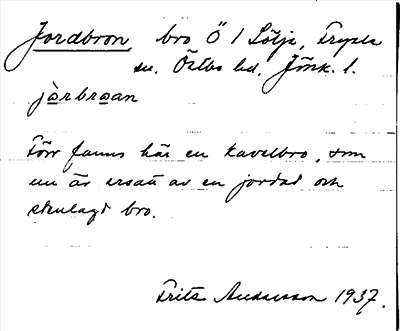 Jordbron, bro Ö I Sölje, Fryele
sn. Östbo hd. Jönk. l.
jo̲rbro̲an
Förr fanns här en kavelbro, som
nu är ersatt av en jordad och
stenlagd bro.
Frits Andersson 1937.